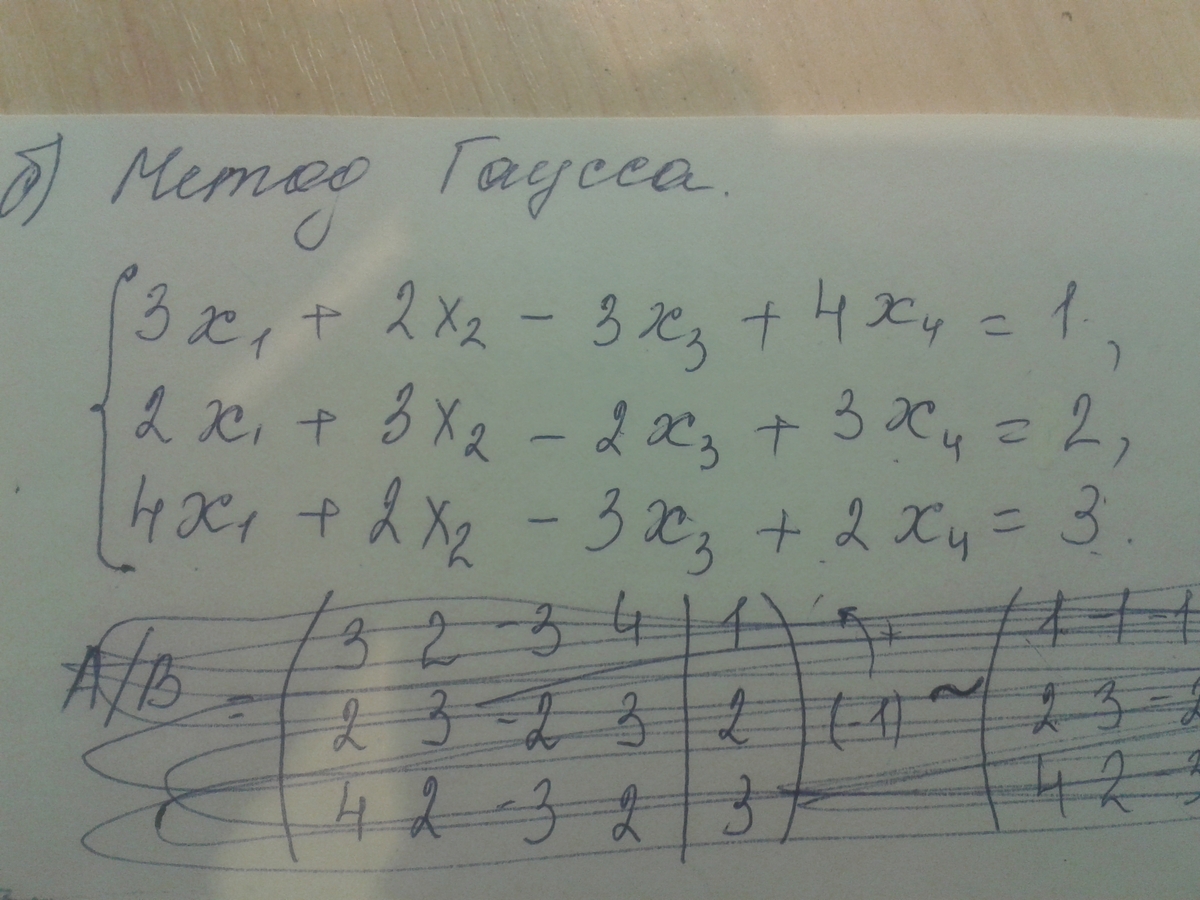 б) Метод Гаусса.
3x₁ + 2x₂ - 3x₃ + 4x₄ = 1,
2x₁ + 3x₂ - 2x₃ + 3x₄ = 2,
4x₁ + 2x₂ - 3x₃ + 2x₄ = 3.
3 2 -3 4 | 1 + 1 -1 -1
A/B = 2 3 -2 3 | 2 (-1) ~ 2 3 -2
4 2 -3 2 | 3 4 2 -3